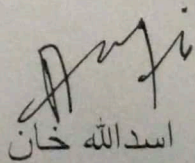 اسدالله خان